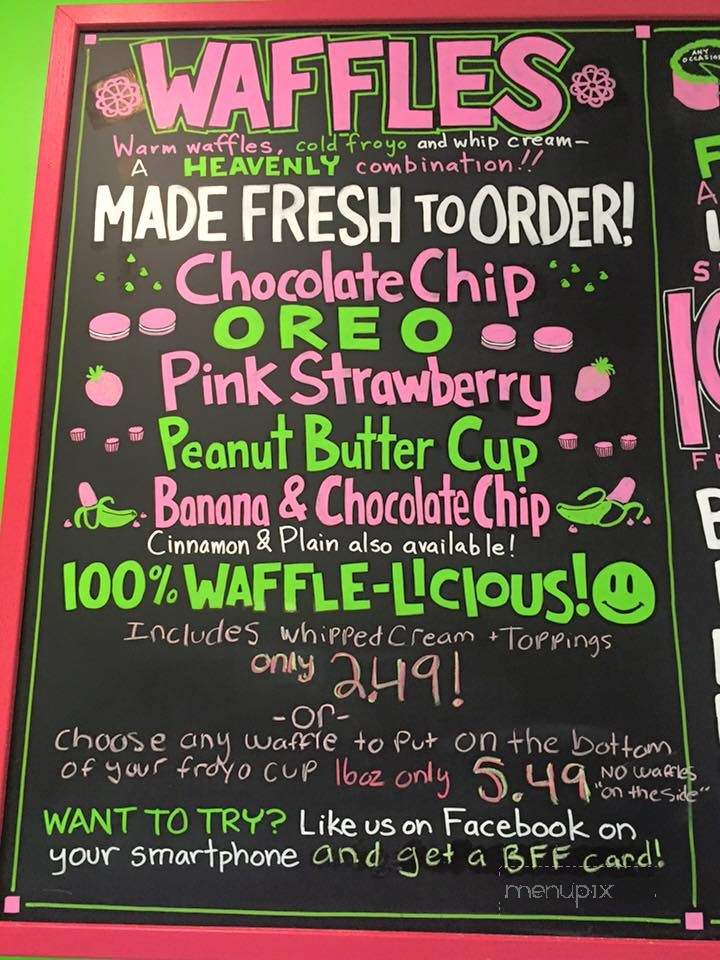 WAFFLES
Warm waffles, cold froyo and whip cream-
A HEAVENLY combination!!
MADE FRESH TO ORDER!
Chocolate Chip
OREO
Pink Strawberry
Peanut Butter Cup
Banana & Chocolate Chip
Cinnamon & Plain also available!
100% WAFFLE-LICIOUS!
Includes whipped Cream + Toppings
only 2.49!
-or-
Choose any waffle to Put on the bottom
of your froyo cup 16oz only 5.49 NO waffles
"on the side"
WANT TO TRY? Like us on Facebook on
your smartphone and get a BFF card!
menupix
ANY
OCCASION